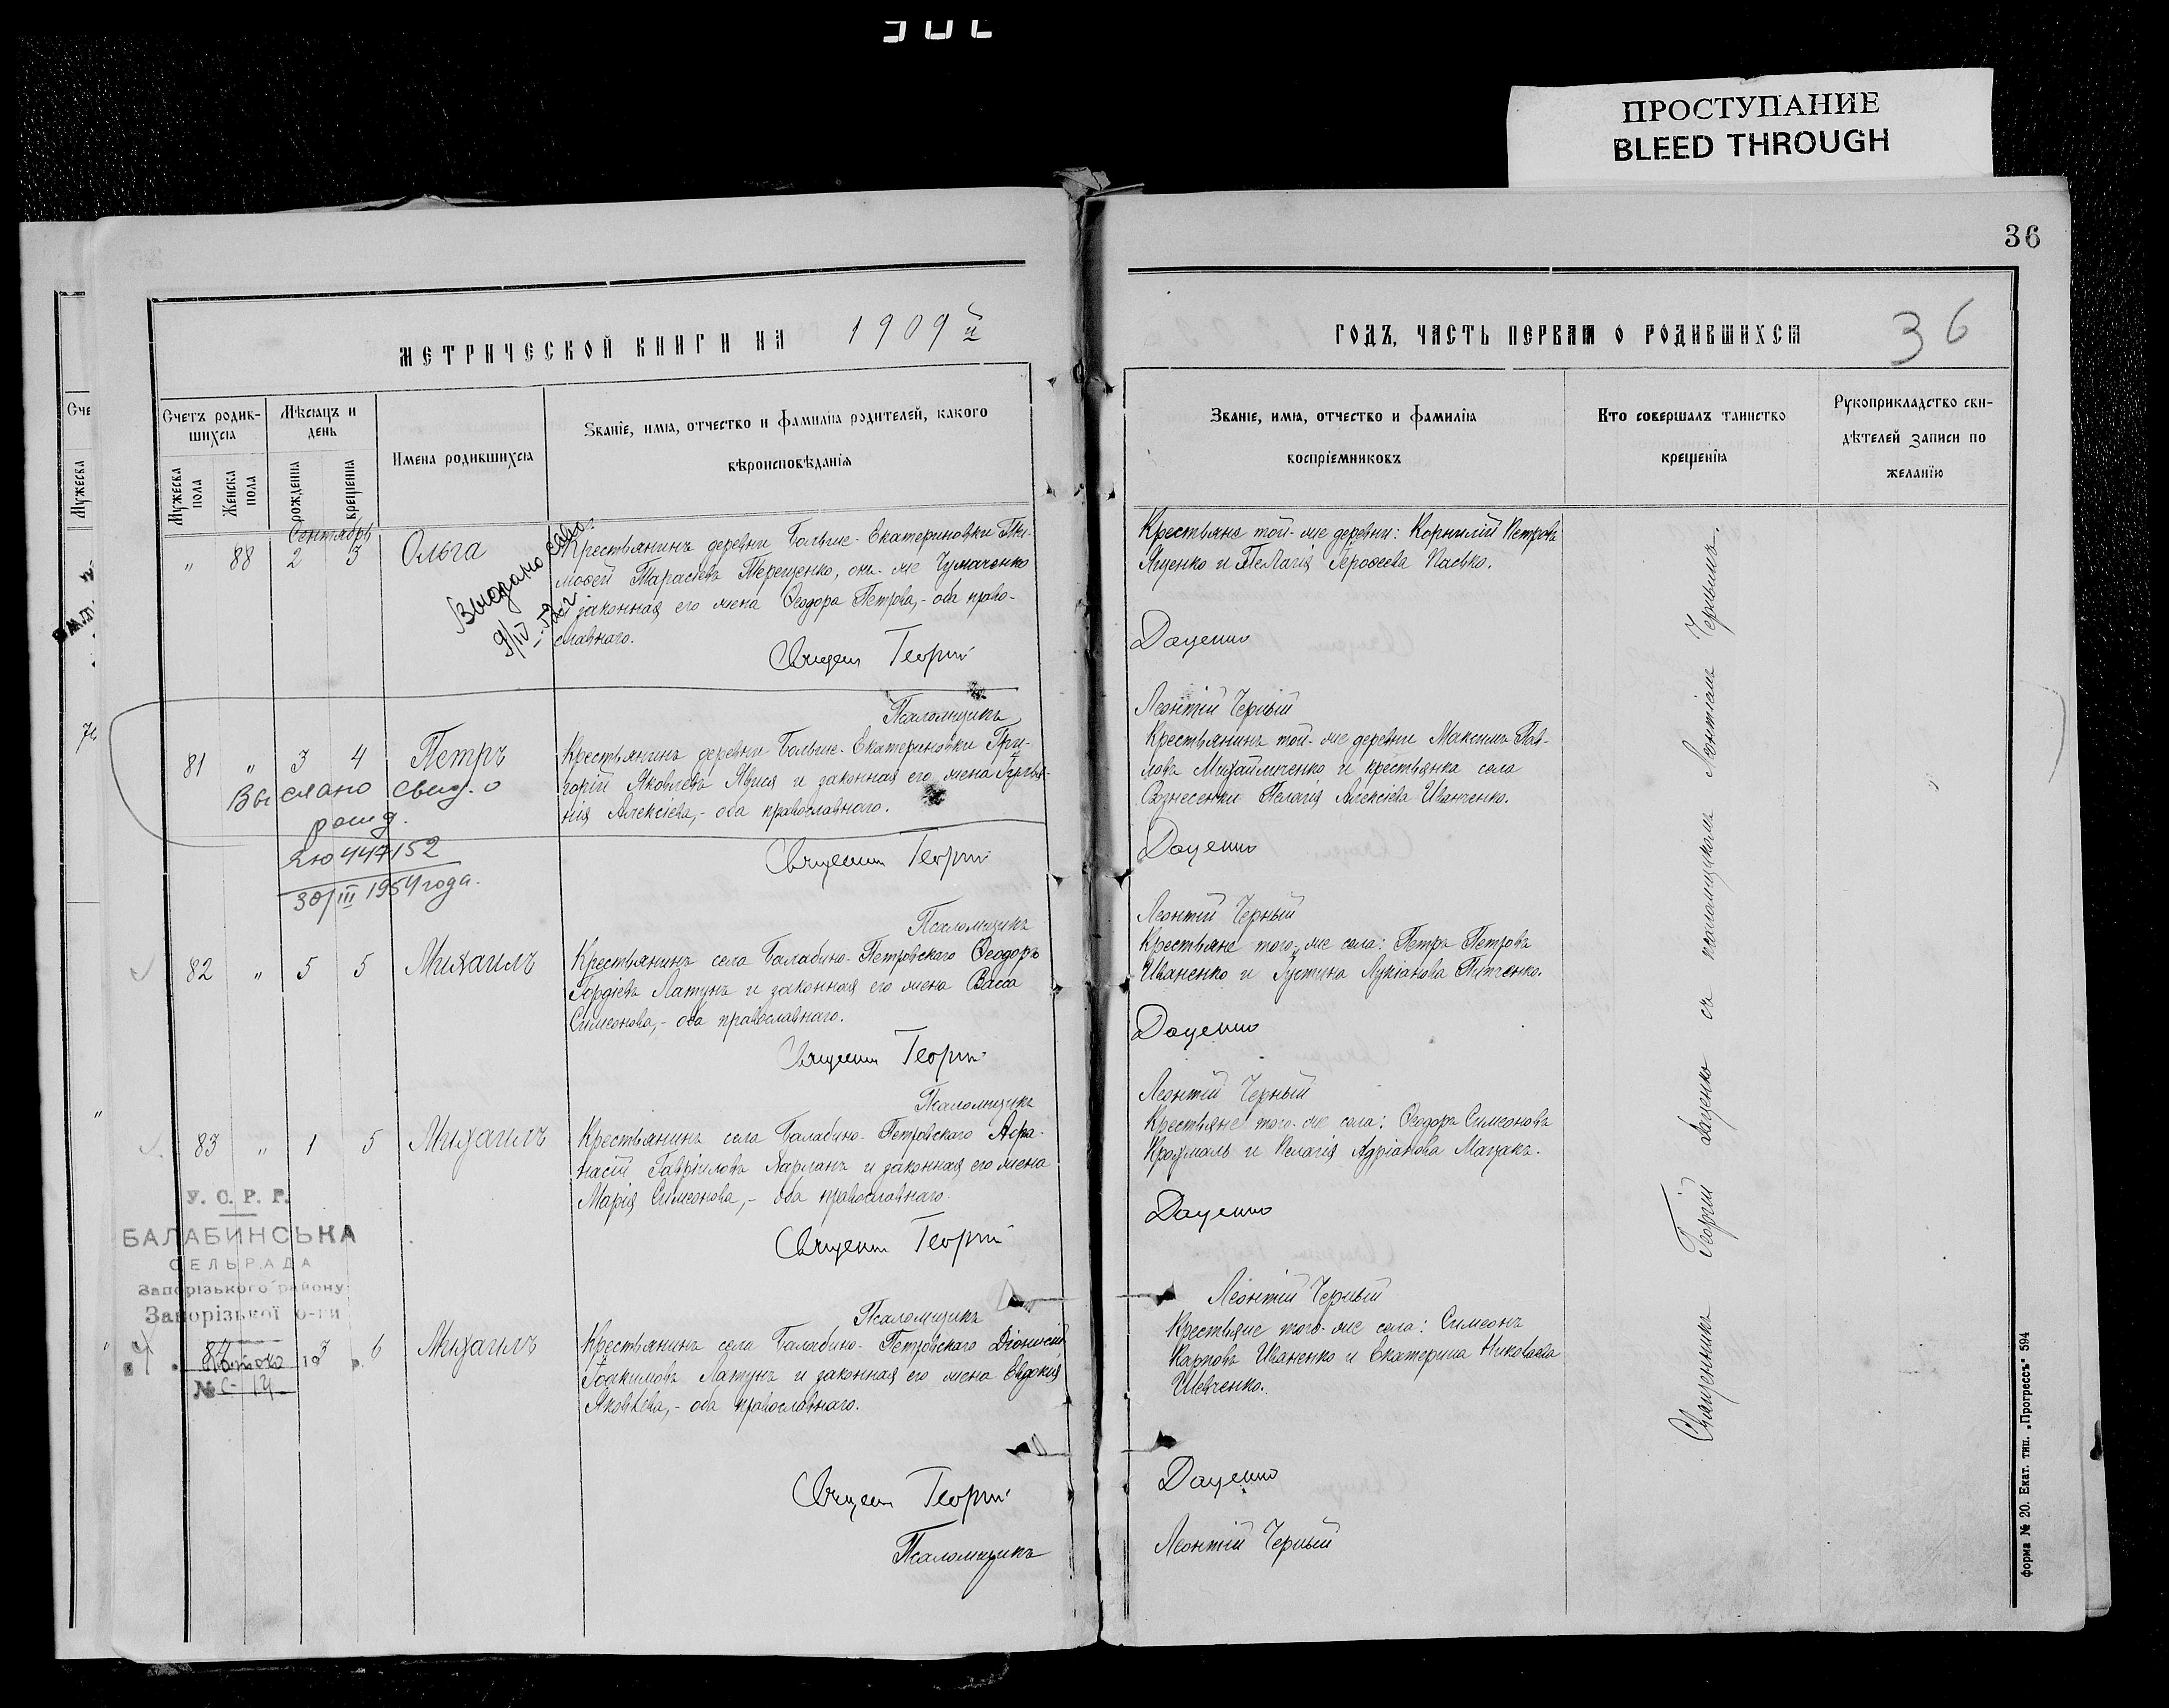 ПРОСТУПАНИЕ
BLEED THROUGH
36
МЕТРИЧЕСКОЙ КНИГИ НА 1909й
Счетъ родив-
шихся
Мѣсяцъ и
день
Имена родившихся
Званіе, имя, отчество и фамилія родителей, какого
вѣроисповѣданія
Мужеска
пола
Женска
пола
рожденія
крещенія
Сентябрь
" 88 2 3 Ольга
Крестьянинъ деревни Больше-Екатериновки Ти-
моѳей Тарасіевъ Терещенко, онъ-же Чумаченко
и законная его жена Ѳеодора Петрова,- оба право-
славнаго.
Выдано
9/IV-
Священ Георгій
Псаломщикъ
81 " 3 4 Петръ
Крестьянинъ деревни Больше-Екатериновки Гри-
горій Яковлевъ Явися и законная его жена
нія Алексіева,- оба православнаго.
Выслано свид. о
рожд.
447152
30/III 1954 года.
Священник Георгій
Псаломщикъ
82 " 5 5 Михаилъ
Крестьянинъ села Балабино-Петровскаго Ѳеодоръ
Гордіевъ Латунъ и законная его жена Васса
Симеонова,- оба православнаго.
Священник Георгій
Псаломщикъ
83 " 1 5 Михаилъ
Крестьянинъ села Балабино-Петровскаго Аѳа-
насій Гавріиловъ Харланъ и законная его жена
Марія Симеонова,- оба православнаго
Священник Георгій
Псаломщикъ
У. С. Р. Р.
БАЛАБИНСЬКА
СЕЛЬРАДА
Запорізького району
Запорізької о-ги
84 3 6 Михаилъ
№ С-14
Крестьянинъ села Балабино-Петровскаго Діонисій
Іоакимовъ Латунъ и законная его жена Евдокія
Яковлева,- оба православнаго.
Священ Георгій
Псаломщикъ
ГОДЪ, ЧАСТЬ ПЕРВАЯ О РОДИВШИХСЯ
36
Званіе, имя, отчество и фамилія
воспріемниковъ
Кто совершалъ таинство
крещенія
Рукоприкладство сви-
дѣтелей записи по
желанію
Крестьяне той-же деревни: Корнилій Петровъ
Яценко и Пелагія Героѳеева Пасько.
Даценко
Леонтій Черный
Крестьянинъ той-же деревни Максимъ Пав-
ловъ Михайличенко и крестьянка села
Вознесенки Пелагія Алексіева Иванченко.
Даценко
Леонтій Черный
Крестьяне того-же села: Петръ Петровъ
Иваненко и Іустина Лукіанова
Даценко
Леонтій Черный
Крестьяне того-же села: Ѳеодоръ Симеоновъ
и Пелагія Адріанова Мацакъ.
Даценко
Леонтій Черный
Крестьяне того-же села: Симеонъ
Карповъ Иваненко и Екатерина Николаева
Шевченко.
Даценко
Леонтій Черный
Священникъ Георгій Даценко съ псаломщикомъ Леонтіемъ Чернымъ.
форма № 20. Екат. тип. „Прогрессъ" 594